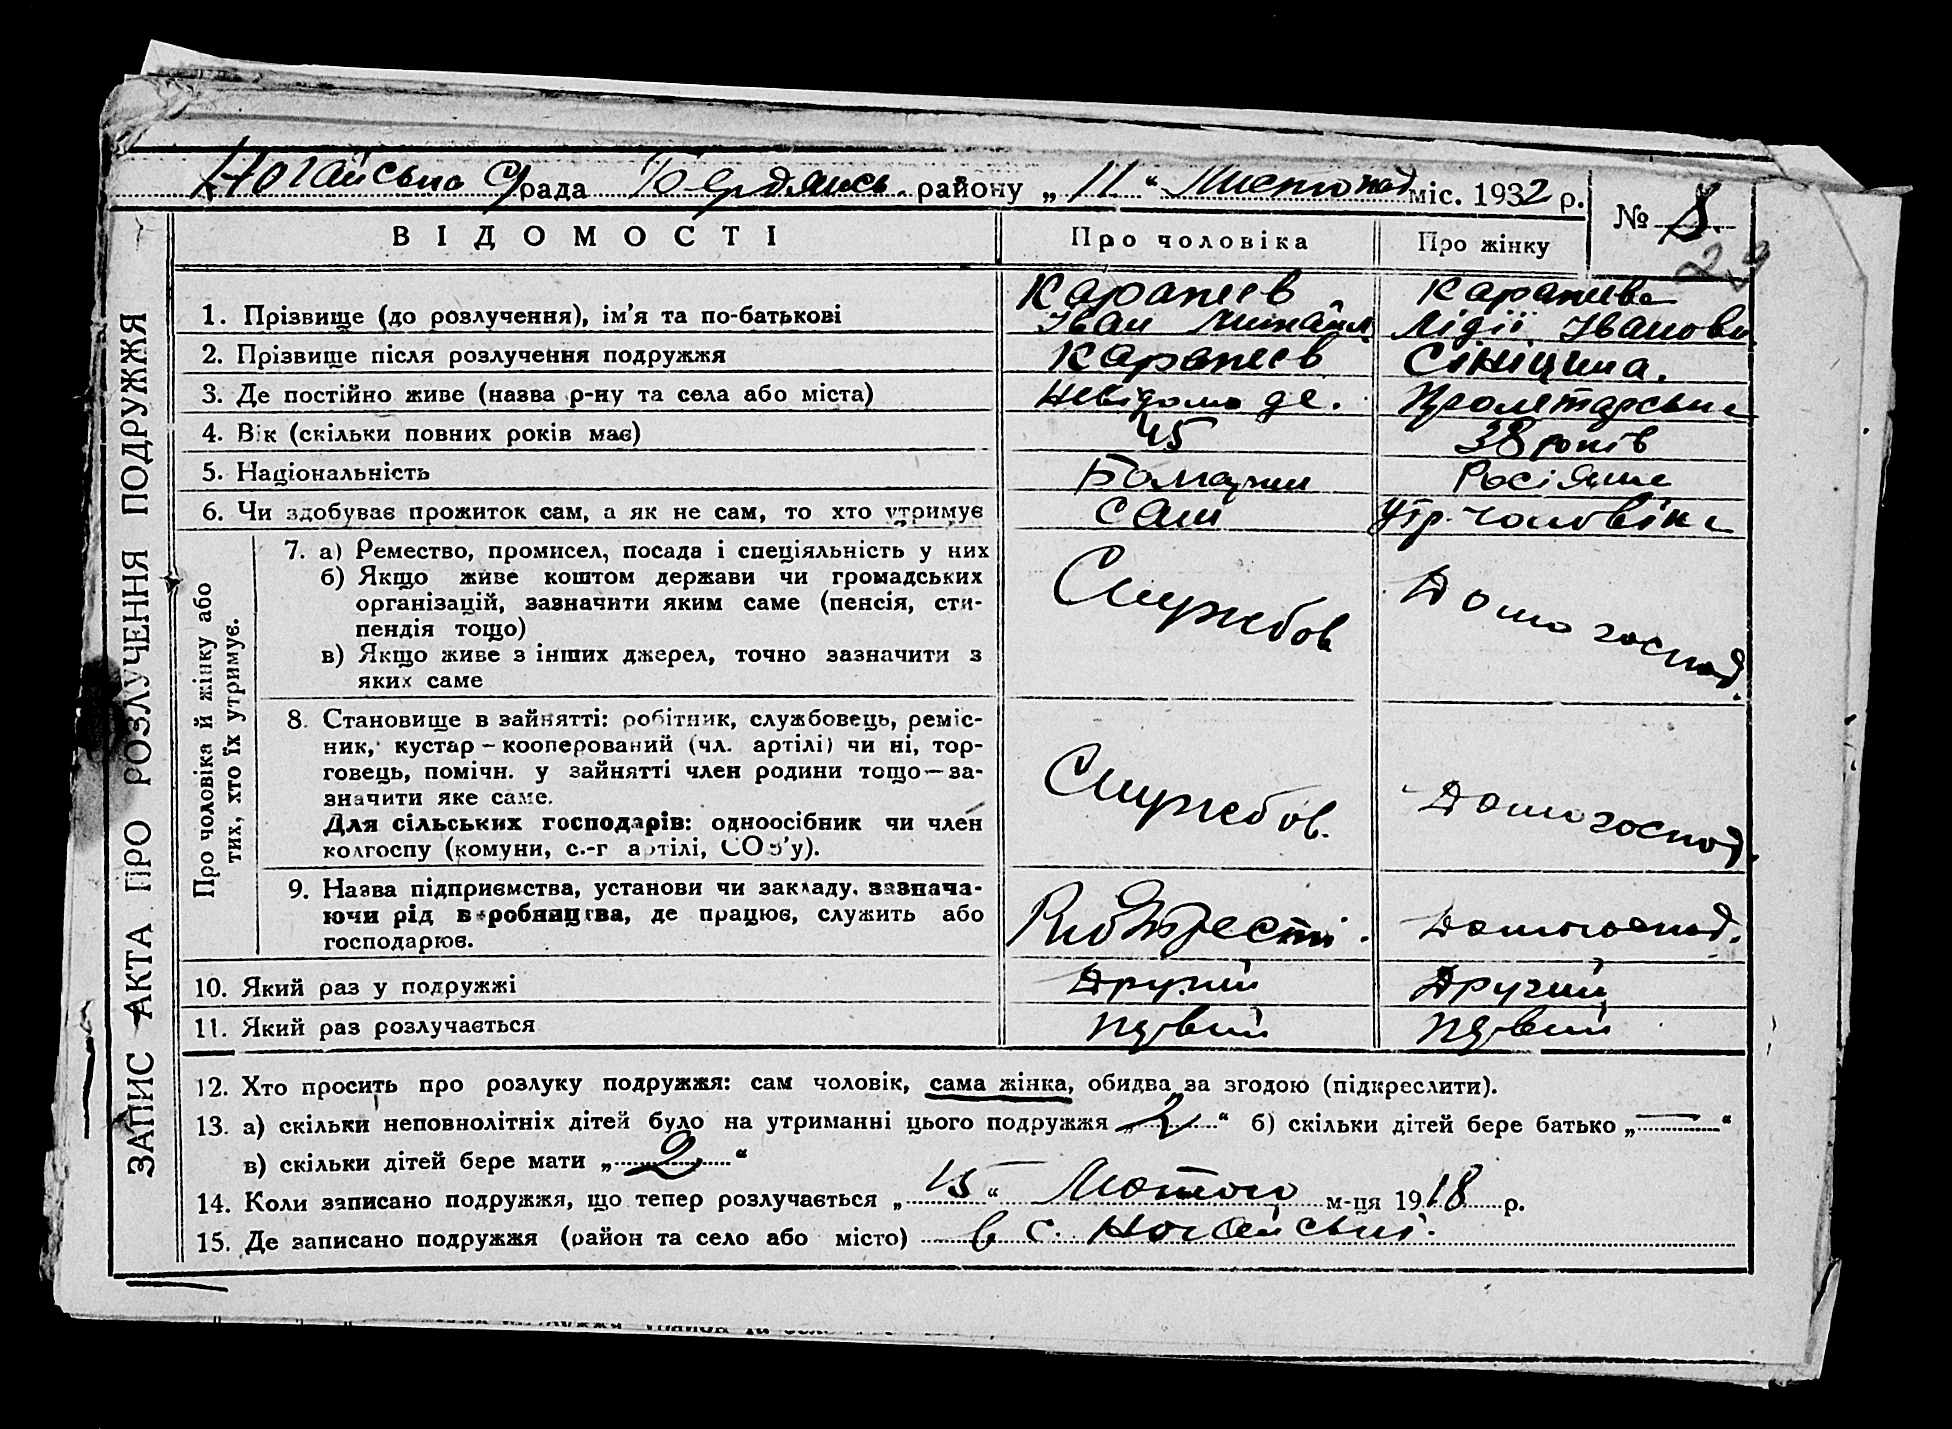 Ногайська С/рада Бердянськ. району „11“ Листопад міс. 1932 р.
№ 8
24
ВІДОМОСТІ
Про чоловіка
Про жінку
ЗАПИС АКТА ПРО РОЗЛУЧЕННЯ ПОДРУЖЖЯ
1. Прізвище (до розлучення), ім’я та по-батькові
Карапеев
Іван Михайл.
Карапеева
Лідії Іванови
2. Прізвище після розлучення подружжя
Карапеев
Сініцина.
3. Де постійно живе (назва р-ну та села або міста)
Невідомо де.
Пролетарська
4. Вік (скільки повних років має)
45
38 років
5. Національність
Болгарин
Росіянка
6. Чи здобуває прожиток сам, а як не сам, то хто утримує
сам
Утр. чоловіка
Про чоловіка й жінку або
тих, хто їх утримує.
7. а) Ремество, промисел, посада і спеціяльність у них
б) Якщо живе коштом держави чи громадських
організацій, зазначити яким саме (пенсія, сти-
пендія тощо)
в) Якщо живе з інших джерел, точно зазначити з
яких саме
Службов
Домогоспод.
8. Становище в зайнятті: робітник, службовець, реміс-
ник, кустар – кооперований (чл. артілі) чи ні, тор-
говець, помічн. у зайнятті член родини тощо — за-
значити яке саме.
Для сільських господарів: одноосібник чи член
колгоспу (комуни, с.-г артілі, СОЗ’у).
Службов.
Домогоспод.
9. Назва підприємства, установи чи закладу, зазнача-
ючи рід виробництва, де працює, служить або
господарює.
Домогоспод.
10. Який раз у подружжі
Другий
Другий
11. Який раз розлучається
первий
первий
12. Хто просить про розлуку подружжя: сам чоловік, сама жінка, обидва за згодою (підкреслити).
13. а) скільки неповнолітніх дітей було на утриманні цього подружжя „2“ б) скільки дітей бере батько „—“
в) скільки дітей бере мати „2“
14. Коли записано подружжя, що тепер розлучається „15“ Лютого м-ця 1918 р.
15. Де записано подружжя (район та село або місто) в с. Ногайськи.